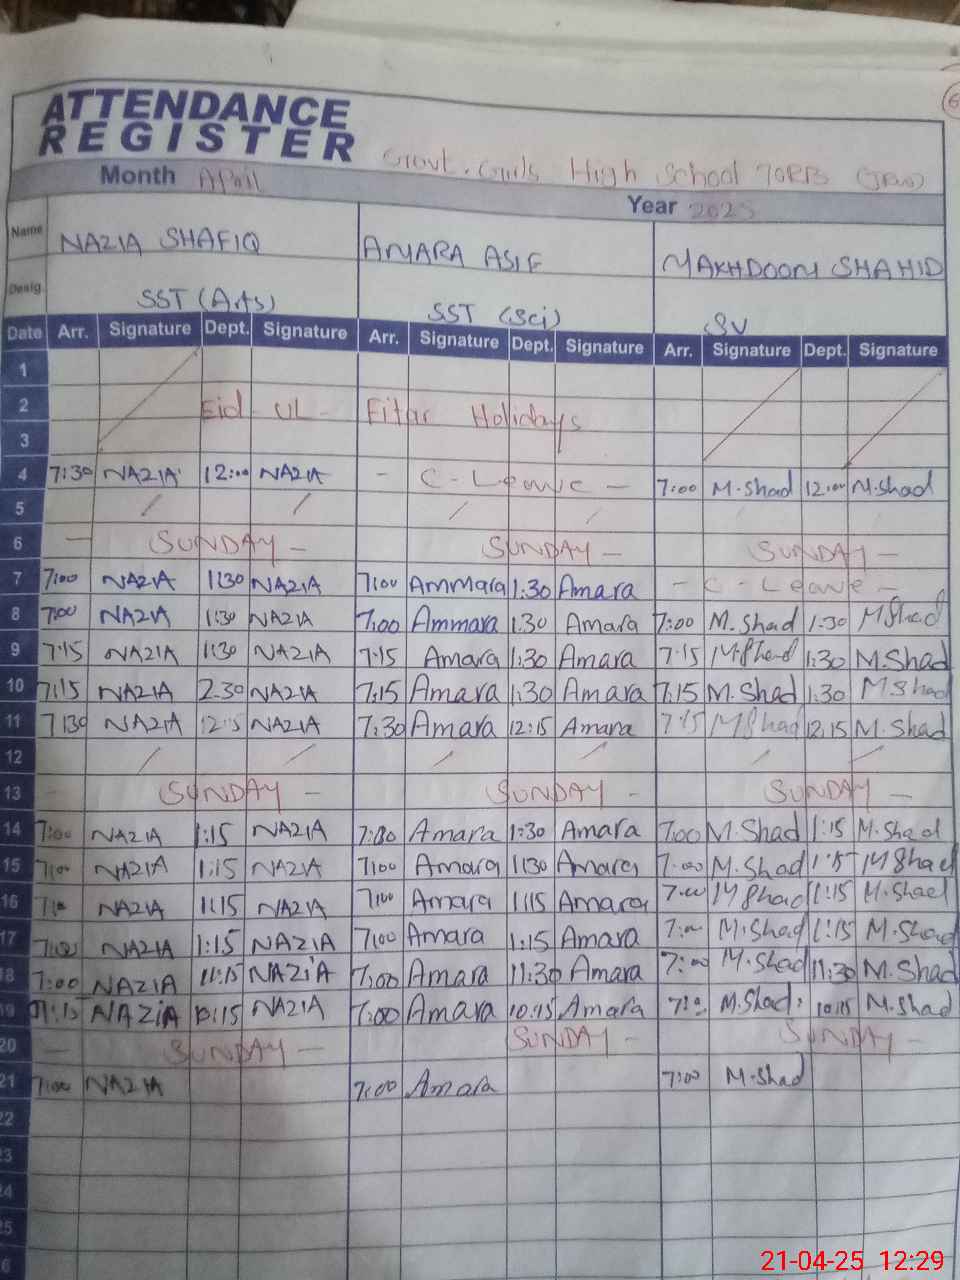 ATTENDANCE
REGISTER
Govt. Girls High School 70RB
Month April
Year 2025
Name NAZIA SHAFIQ AMARA ASIF MAKHDOOM SHAHID
Desig. SST (Arts) SST (Sci) SV
Date Arr. Signature Dept. Signature Arr. Signature Dept. Signature Arr. Signature Dept. Signature
1
2 Eid-UL-Fitar Holidays
3
4 7:30 NAZIA 12:00 NAZIA - C-Leave - 7:00 M.Shad 12:00 M.Shad
5 / / / /
6 - SUNDAY - SUNDAY - SUNDAY -
7 7:00 NAZIA 1:30 NAZIA 7:00 Ammara 1:30 Amara - C-Leave -
8 7:00 NAZIA 1:30 NAZIA 7:00 Ammara 1:30 Amara 7:00 M.Shad 1:30 MShad
9 7:15 NAZIA 1:30 NAZIA 7:15 Amara 1:30 Amara 7:15 MShad 1:30 M.Shad
10 7:15 NAZIA 2:30 NAZIA 7:15 Amara 1:30 Amara 7:15 M.Shad 1:30 MShad
11 7:30 NAZIA 12:15 NAZIA 7:30 Amara 12:15 Amara 7:15 MShad 12:15 M.Shad
12 / / / / / /
13 SUNDAY - SUNDAY - SUNDAY -
14 7:00 NAZIA 1:15 NAZIA Amara 1:30 Amara 7:00 M.Shad 1:15 M.Shad
15 7:00 NAZIA 1:15 NAZIA 7:00 Amara 1:30 Amara 7:00 M.Shad 1:15 MShad
16 NAZIA 1:15 NAZIA 7:00 Amara 1:15 Amara 7:00 MShad 1:15 M.Shad
17 7:00 NAZIA 1:15 NAZIA 7:00 Amara 1:15 Amara 7:00 M.Shad 1:15 M.Shad
18 7:00 NAZIA 11:15 NAZiA 7:00 Amara 11:30 Amara 7:00 M.Shad 11:30 M.Shad
19 NAZiA 10:15 NAZIA 7:00 Amara 10:15 Amara M.Shad 10:15 M.Shad
20 - SUNDAY - SUNDAY - SUNDAY -
21 7:00 NAZIA 7:00 Amara 7:00 M.Shad
22
23
24
25
21-04-25 12:29